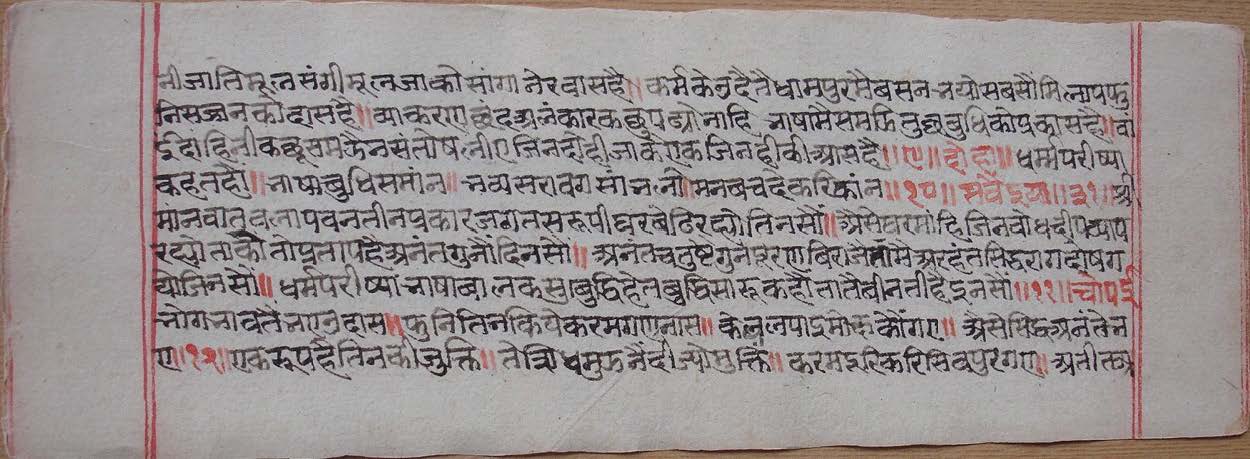 नीजातिमूलसंगीमूलजाकोसांगानेरवासहै॥ कर्मकेउदैतैधामपुरमैबसनभयोसबसौंमिलापफु
निसज्जनकोदासहै॥ व्याकरणछंदअलंकारकछुपढ्योनाहि भाषामैसमझितुछबुधिकोप्रकासहै॥ वां
ईदाहिनीकछूसमझैनसंतोषलीएजिनदोहीजाकैएकजिनहीकीआसहै॥९॥ दोहा॥ धर्मपरीष्या
कहतहौं॥ भाषाबुधिसमांन॥ भव्यसरावगसांभलौ॥ मनबचदेकरिकांन॥१०॥ सवैइया॥३१॥ श्री
मांनवातवलापवनतीनप्रकारजगतसरूपीघरबैठिरह्योतिनसौं॥ अैसेघरमांहिजिनबोधदीपव्याप
रह्योताकोतोप्रतापहैअनंतगुनोदिनसौं॥ अनंतचतुष्टेगुनपूरणबिराजैतामैअरहंतसिद्धरागदोषग
योजिनसौं॥ धर्मपरीष्याभाषाबालकसुबुद्धिहेतबुद्धिसारूकहौंतातैवीनतीहैइनसौं॥११॥ चोपई
जोगभावतैंभएउदास॥ फुनितिनकियेकरमगणनास॥ केवलपाइमोक्षकौंगए॥ अैसेसिद्धअनंतेन
ए॥१२॥ एकरूपहैतिनकीजुक्ति॥ तेत्रिधमुझनैंदीज्योमुक्ति॥ करमदूरिकरिसिवपुरगए॥ अतीतअ